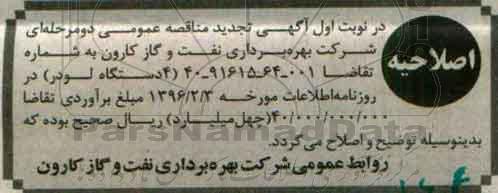 اصلاحیه
در نوبت اول آگهی تجدید مناقصه عمومی دومرحله‌ای
شرکت بهره‌برداری نفت و گاز کارون به شماره
تقاضا ۰۰۱-۶۴-۹۱۶۱۵-۴۰ (۴دستگاه لودر) در
روزنامه‌اطلاعات مورخه ۱۳۹۶/۲/۳ مبلغ برآوردی تقاضا
۴۰/۰۰۰/۰۰۰/۰۰۰(چهل‌میلیارد) ریال صحیح بوده که
بدینوسیله توضیح و اصلاح می‌گردد.
روابط عمومی شرکت بهره‌برداری نفت و گاز کارون
ParsNamadData